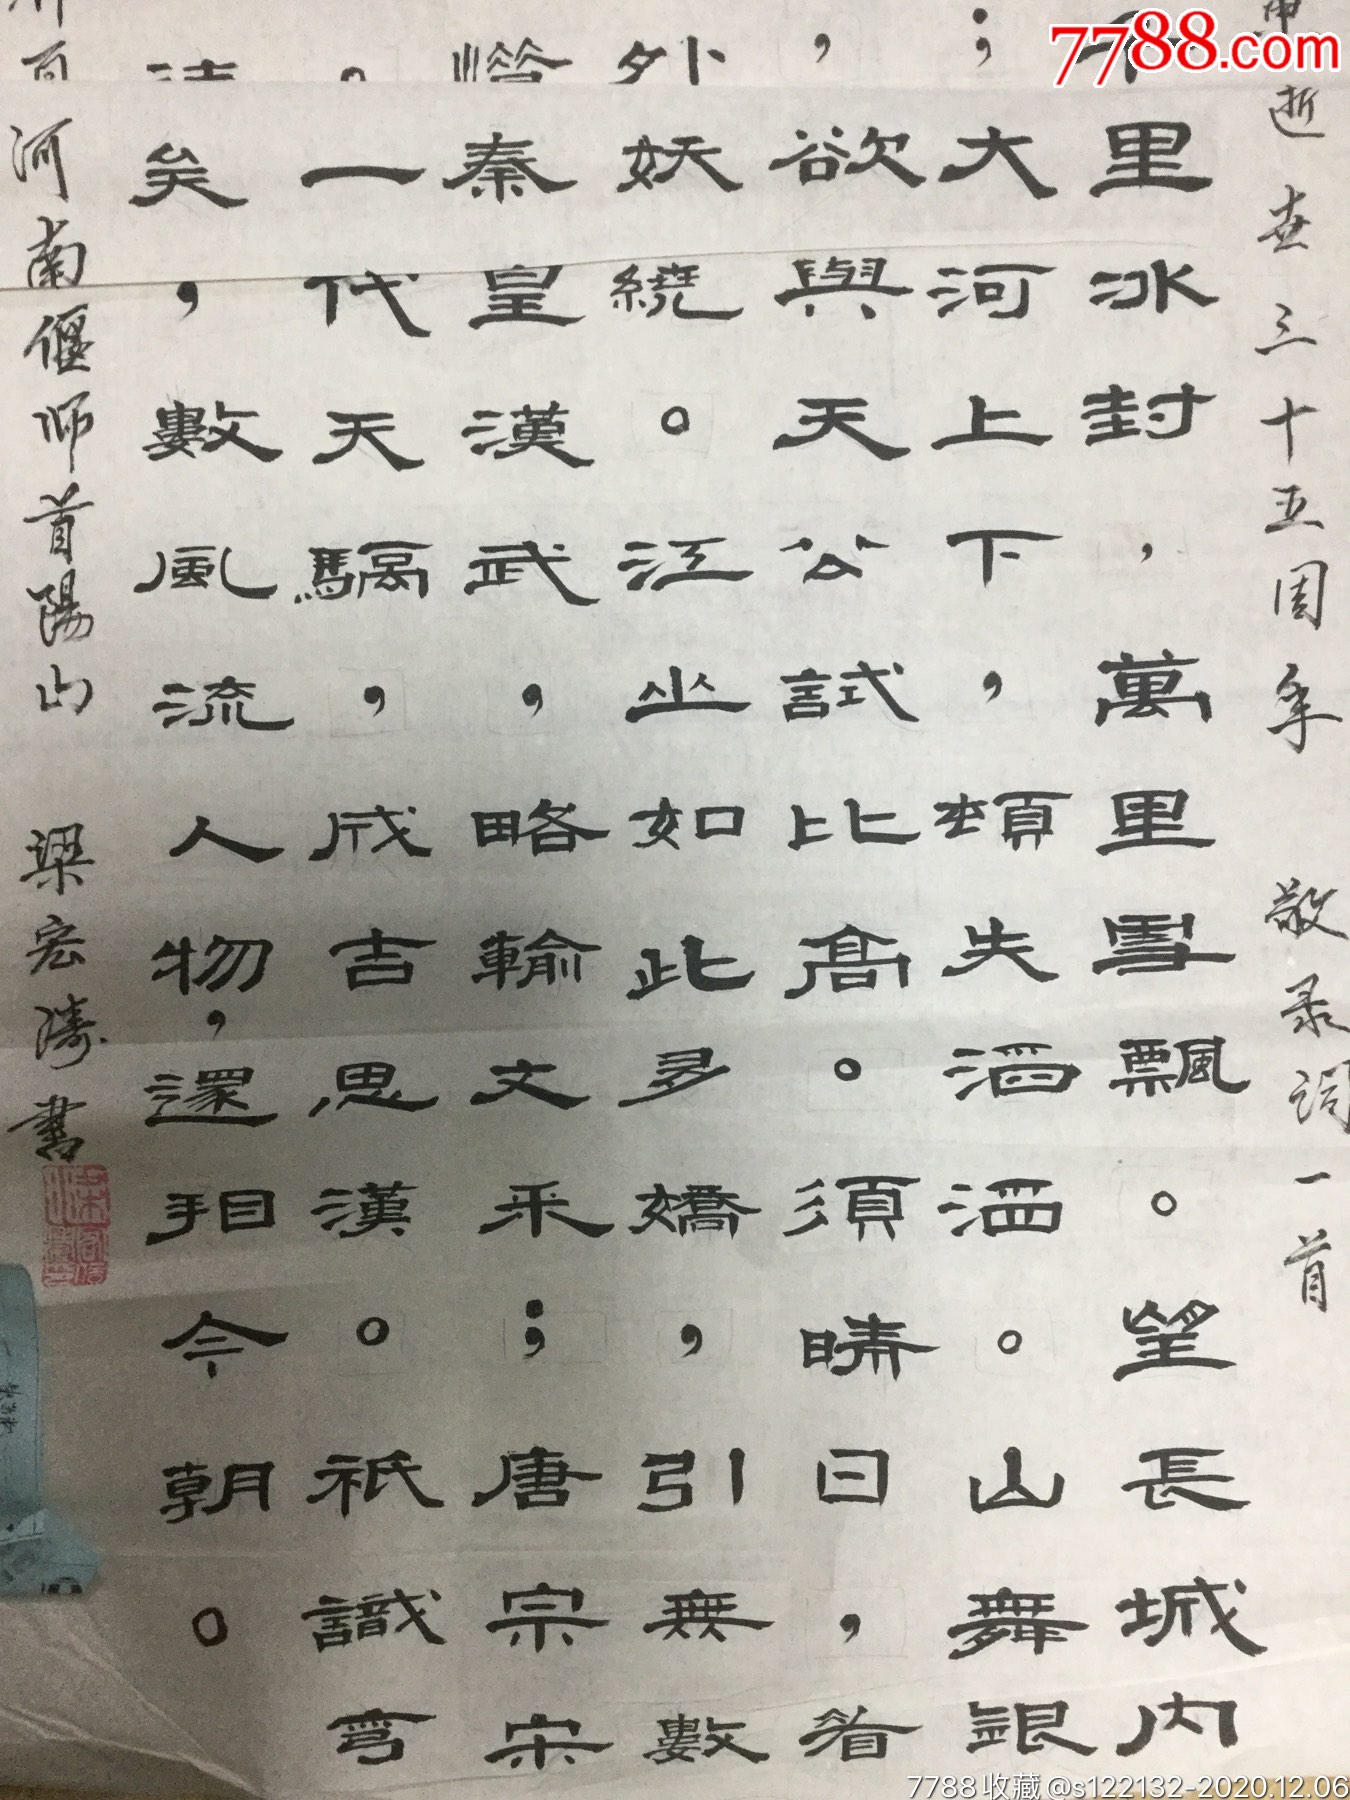 逝世三十五周年 敬录词一首
里冰封，萬里雪飄。望長城内
；大河上下，頓失滔滔。山舞銀
，欲與天公試比高。須晴日，看
外妖繞。江山如此多嬌，引無數
秦皇漢武，略輸文采；唐宗宋
。一代天驕，成吉思漢。祇識
矣，數風流人物，還看今朝。
河南偃师首陽山 梁宏濤書
7788.com
7788收藏@s122132-2020.12.06